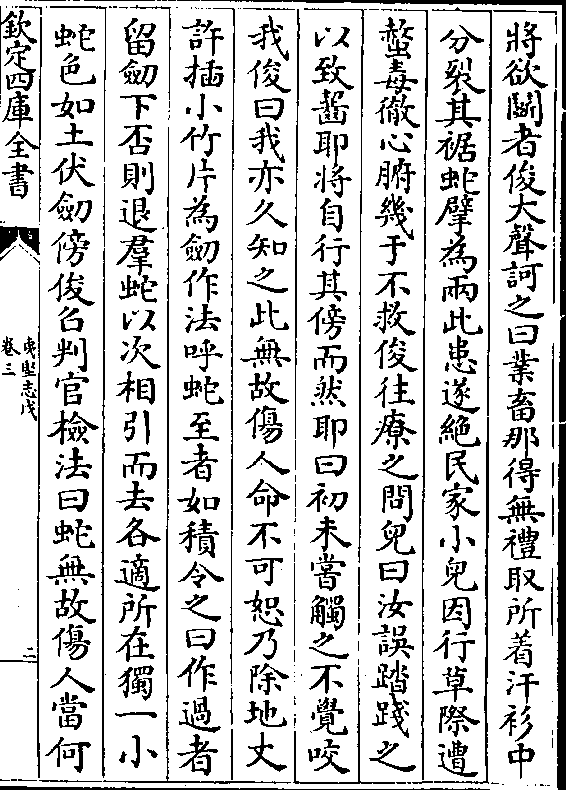 將欲鬭者俊大聲訶之曰業畜那得無禮取所着汗衫中
分裂其裾蛇擘為兩此患遂絶民家小兒因行草際遭
螫毒徹心腑幾于不救俊往療之問兒曰汝誤踏踐之
以致齧耶將自行其傍而然耶曰初未嘗觸之不覺咬
我俊曰我亦久知之此無故傷人命不可恕乃除地丈
許插小竹片為劒作法呼蛇至者如積令之曰作過者
留劒下否則退羣蛇以次相引而去各適所在獨一小
蛇色如土伏劒傍俊召判官檢法曰蛇無故傷人當何
欽定四庫全書
夷堅志戊
卷三
二